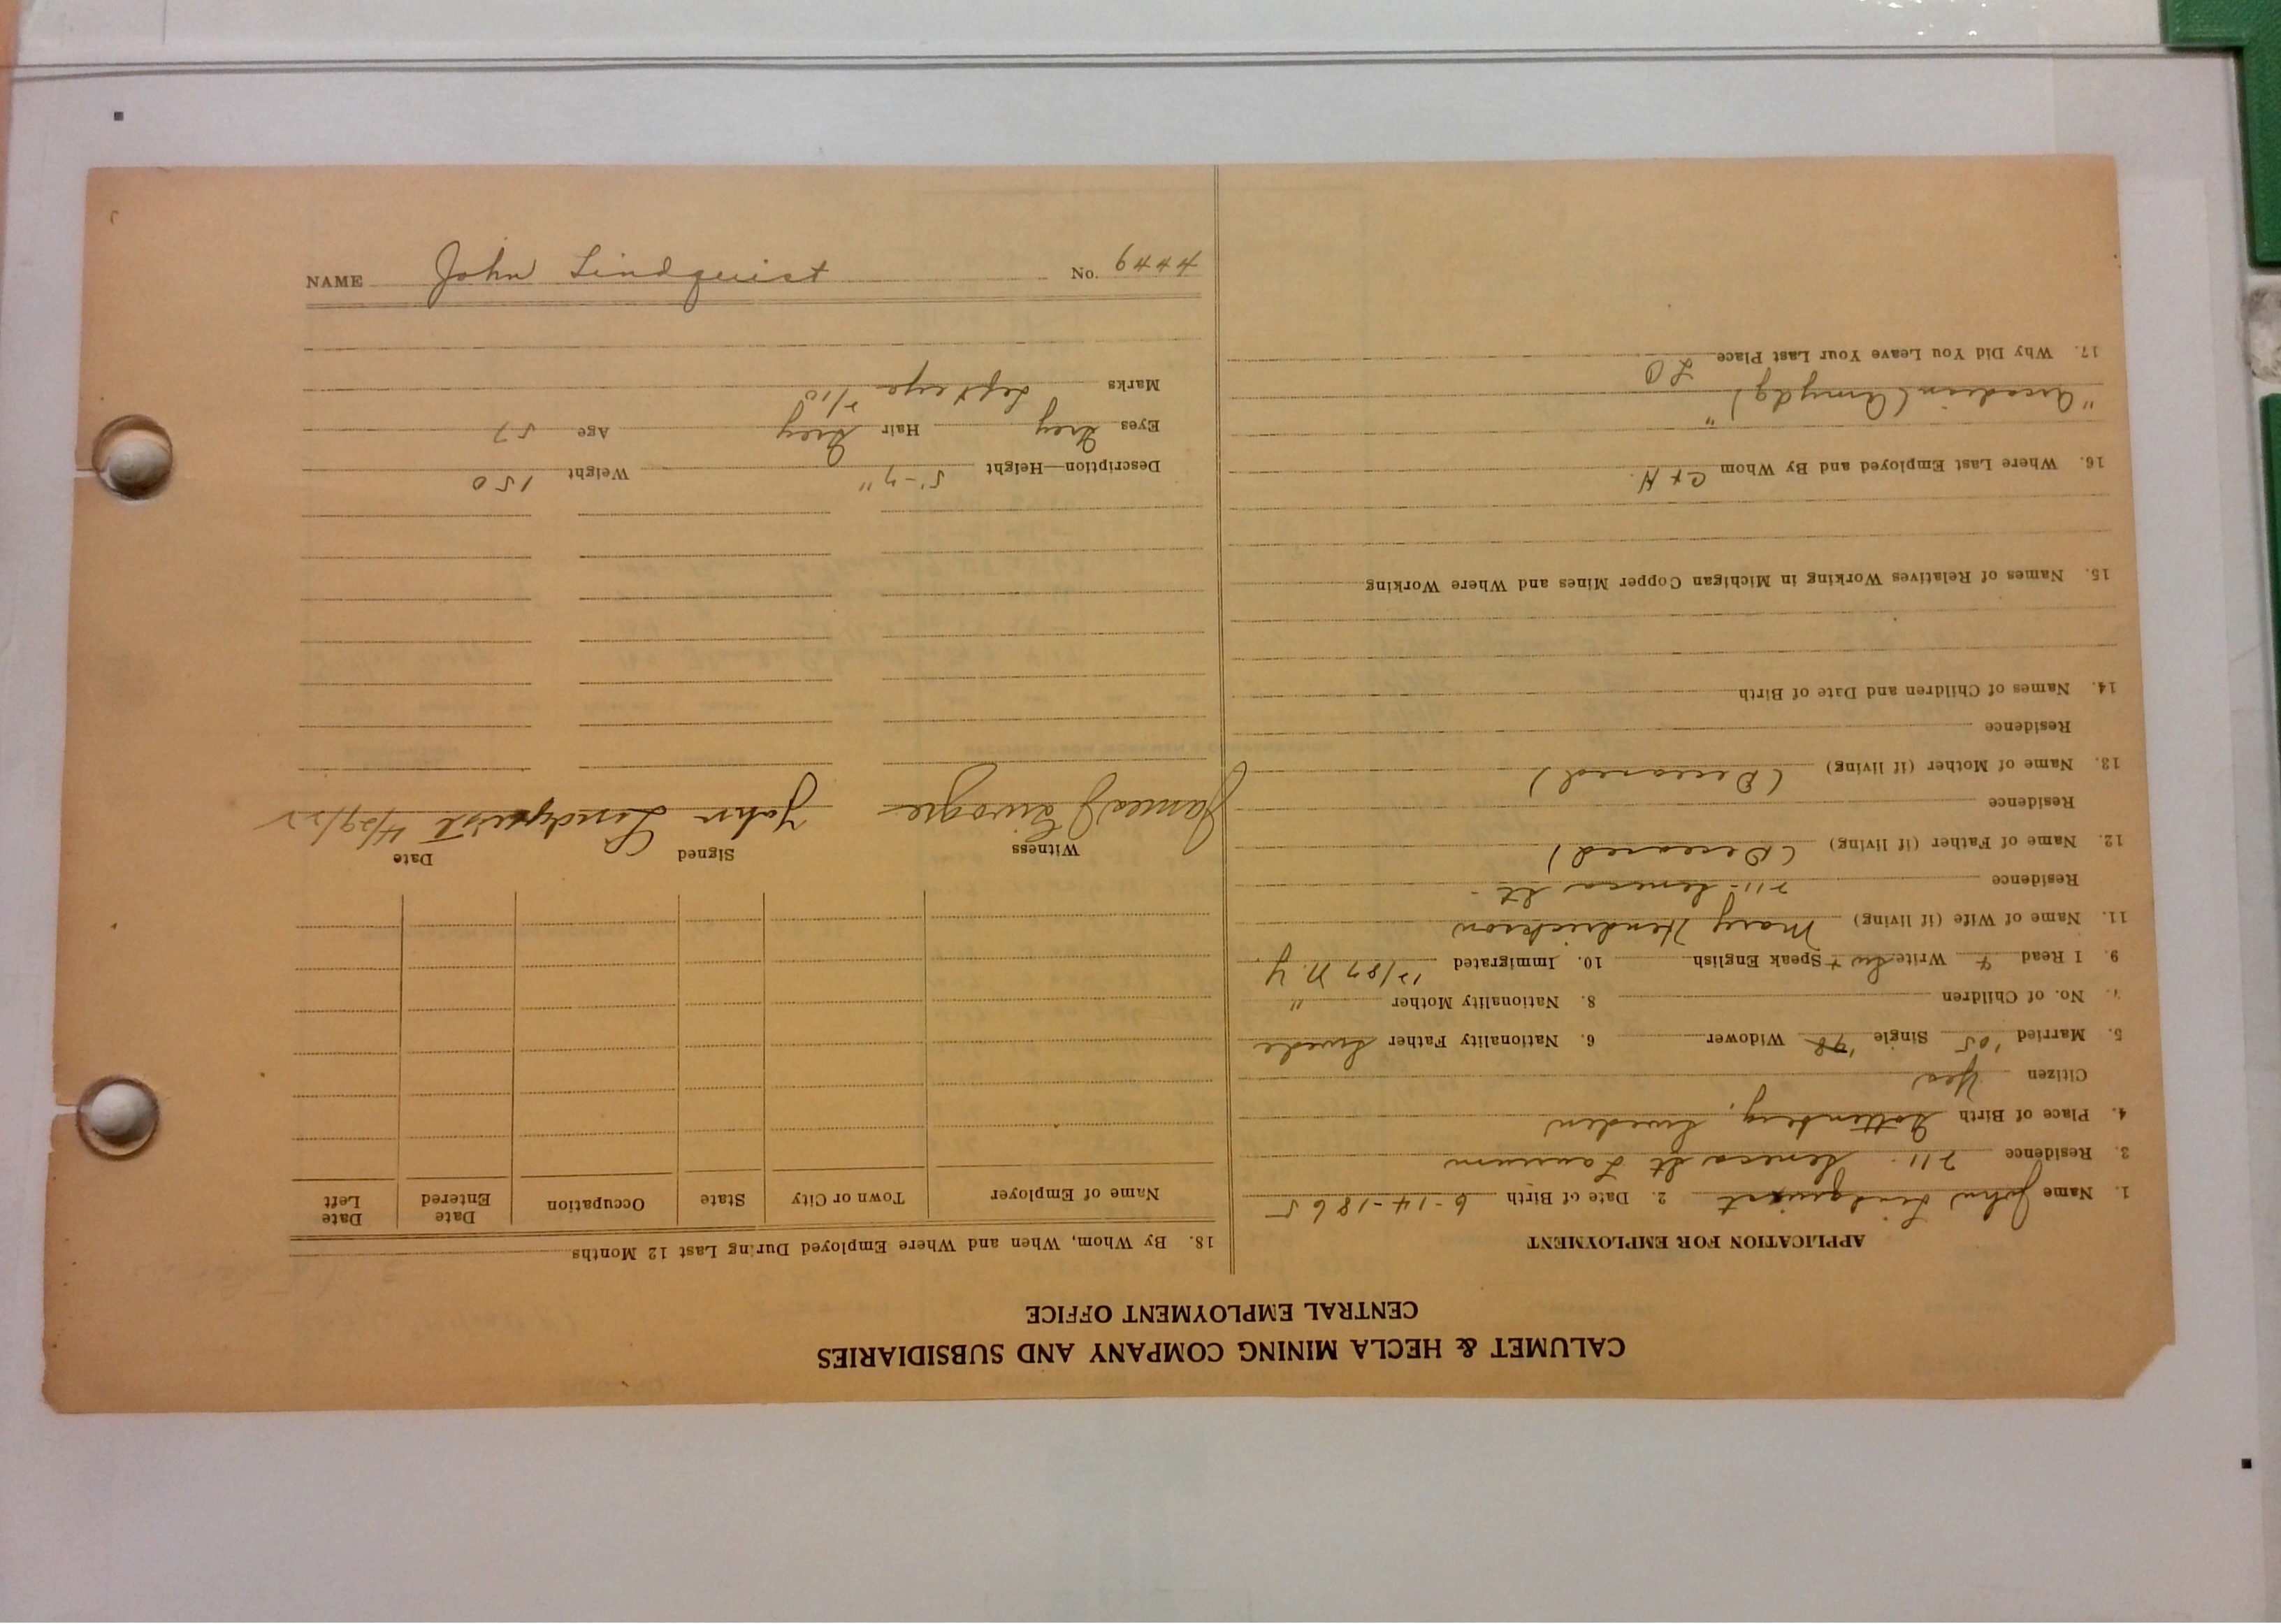 CALUMET & HECLA MINING COMPANY AND SUBSIDIARIES
CENTRAL EMPLOYMENT OFFICE
APPLICATION FOR EMPLOYMENT
1. Name John Lindquist 2. Date of Birth 6-14-1865
3. Residence 711 Seneca St Laurium
4. Place of Birth Gottenberg, Sweden
Citizen Yes
5. Married '05 Single '98 Widower 6. Nationality Father Swede
7. No. of Children 8. Nationality Mother "
9. I Read + Write Sw + Speak English 10. Immigrated 12/87 N.Y.
11. Name of Wife (if living) Mary Hendrickson
Residence 711 Seneca St -
12. Name of Father (if living) (Deceased)
Residence
13. Name of Mother (if living) (Deceased)
Residence
14. Names of Children and Date of Birth
15. Names of Relatives Working in Michigan Copper Mines and Where Working
16. Where Last Employed and By Whom C + H.
"
"Arcadian (Amydg)
17. Why Did You Leave Your Last Place LO
18. By Whom, When and Where Employed During Last 12 Months
Name of Employer Town or City State Occupation Date Entered Date Left
Witness Signed Date
James John Lindquist 4/29/22
Description—Height 5'-7" Weight 150
Eyes Grey Hair Grey Age 57
Marks Left eye 2/10
NAME John Lindquist No. 6444